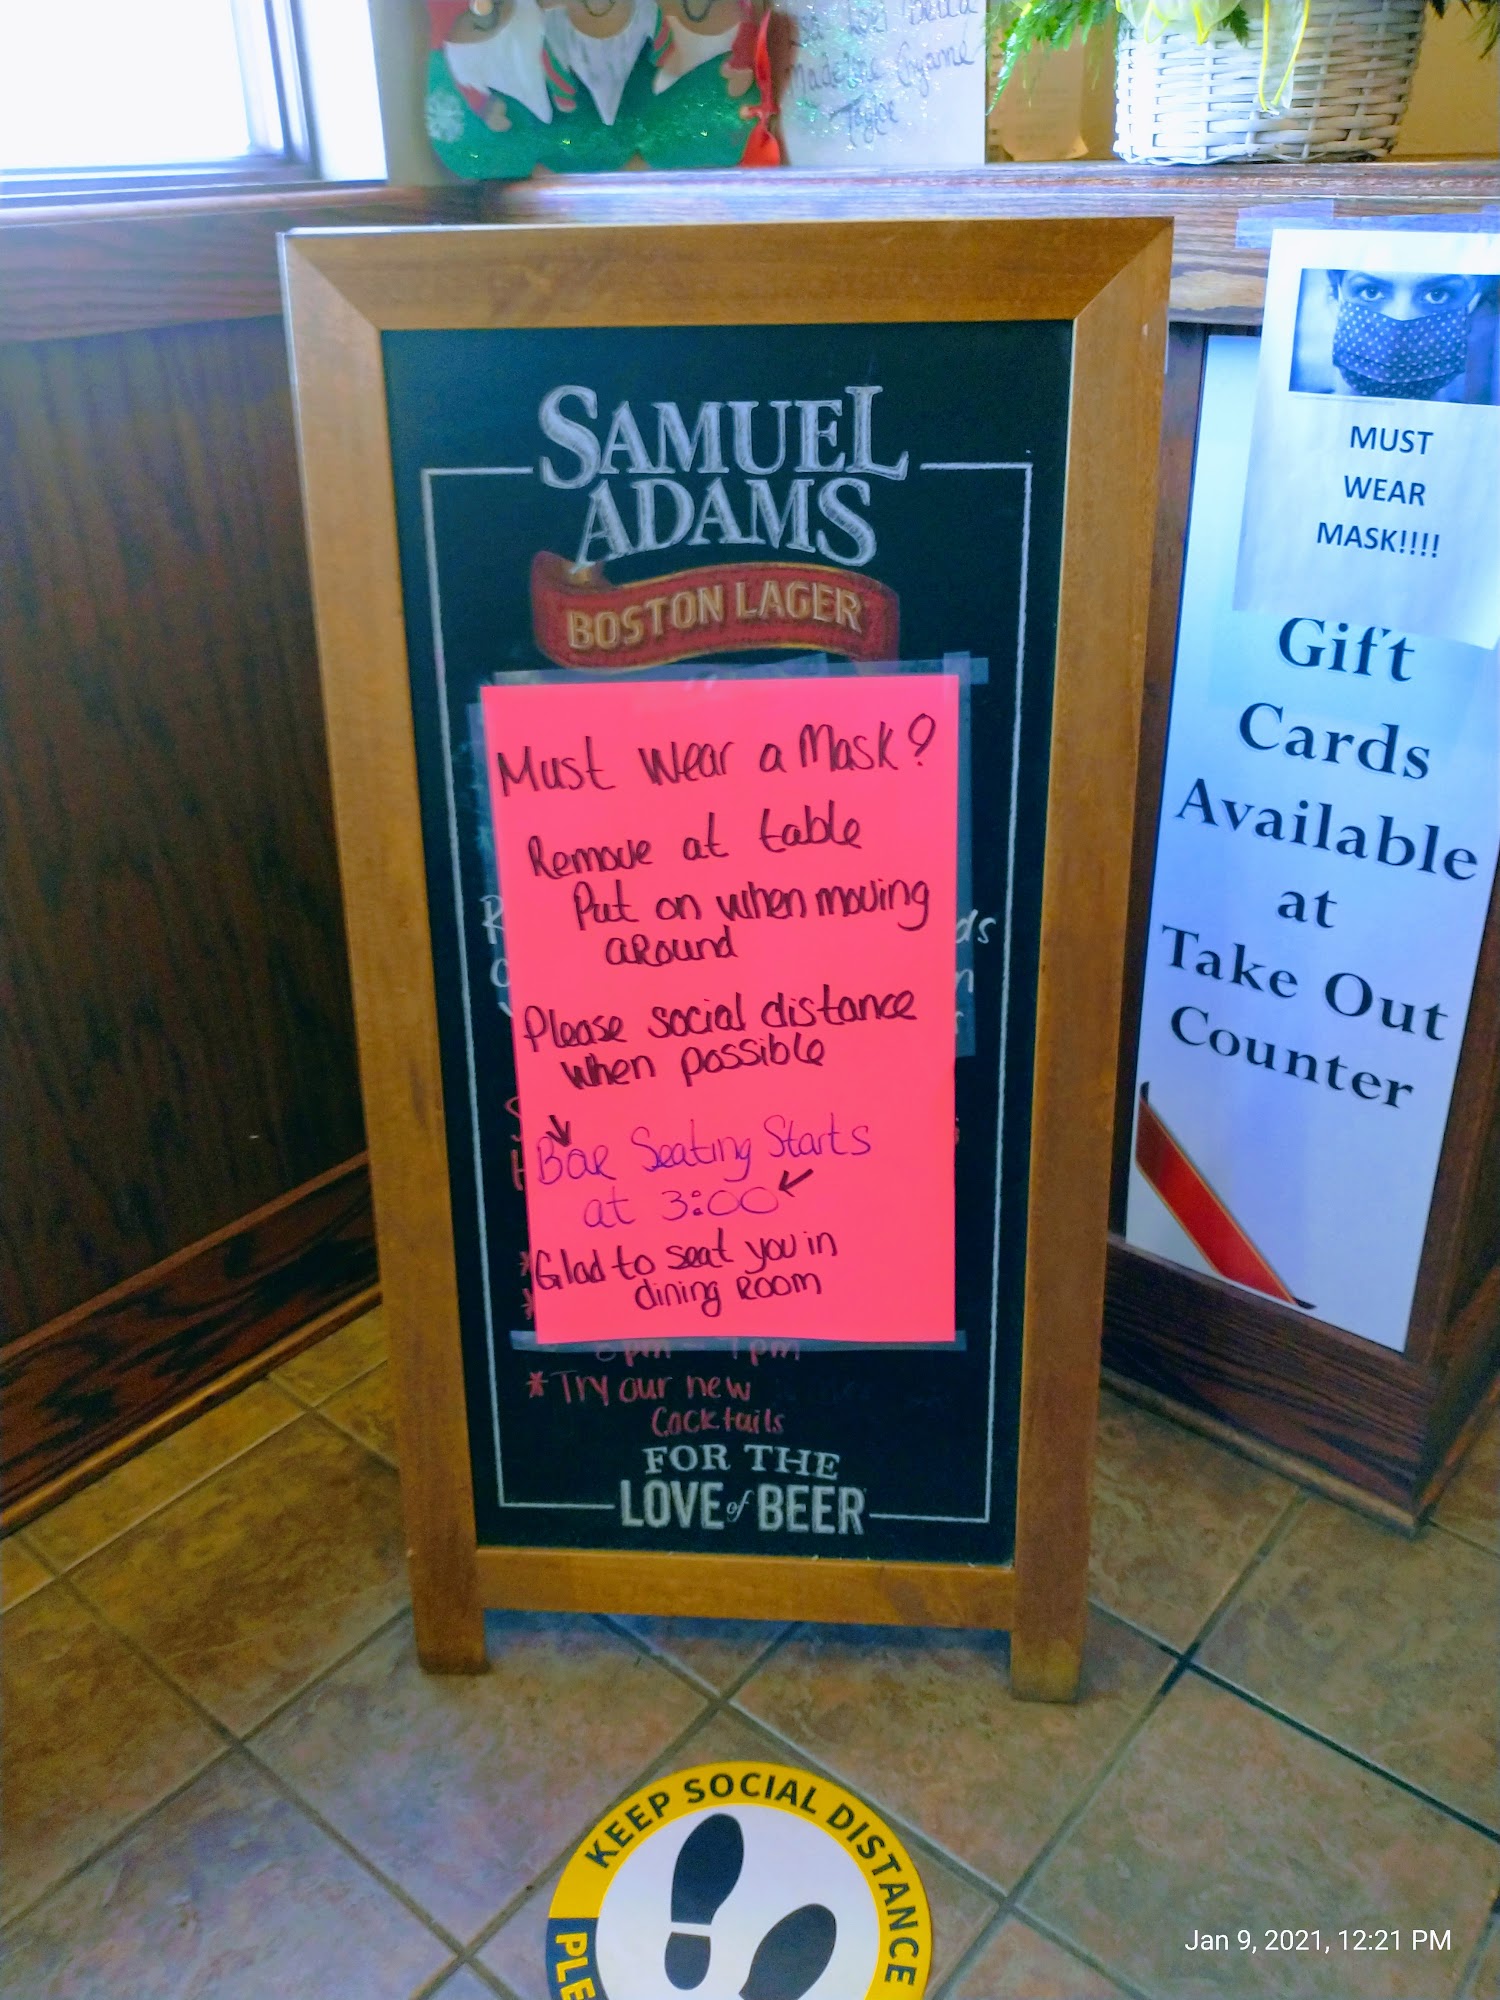 Madeline
Joyce
SAMUEL
ADAMS
BOSTON LAGER
Must Wear a Mask?
Remove at table
Put on when moving
around
Please social distance
when possible
Bar Seating Starts
at 3:00
Glad to seat you in
dining Room
pm - 7pm
*Try our new
Cocktails
FOR THE
LOVE of BEER
MUST
WEAR
MASK!!!!
Gift
Cards
Available
at
Take Out
Counter
KEEP SOCIAL DISTANCE
PLE
Jan 9, 2021, 12:21 PM